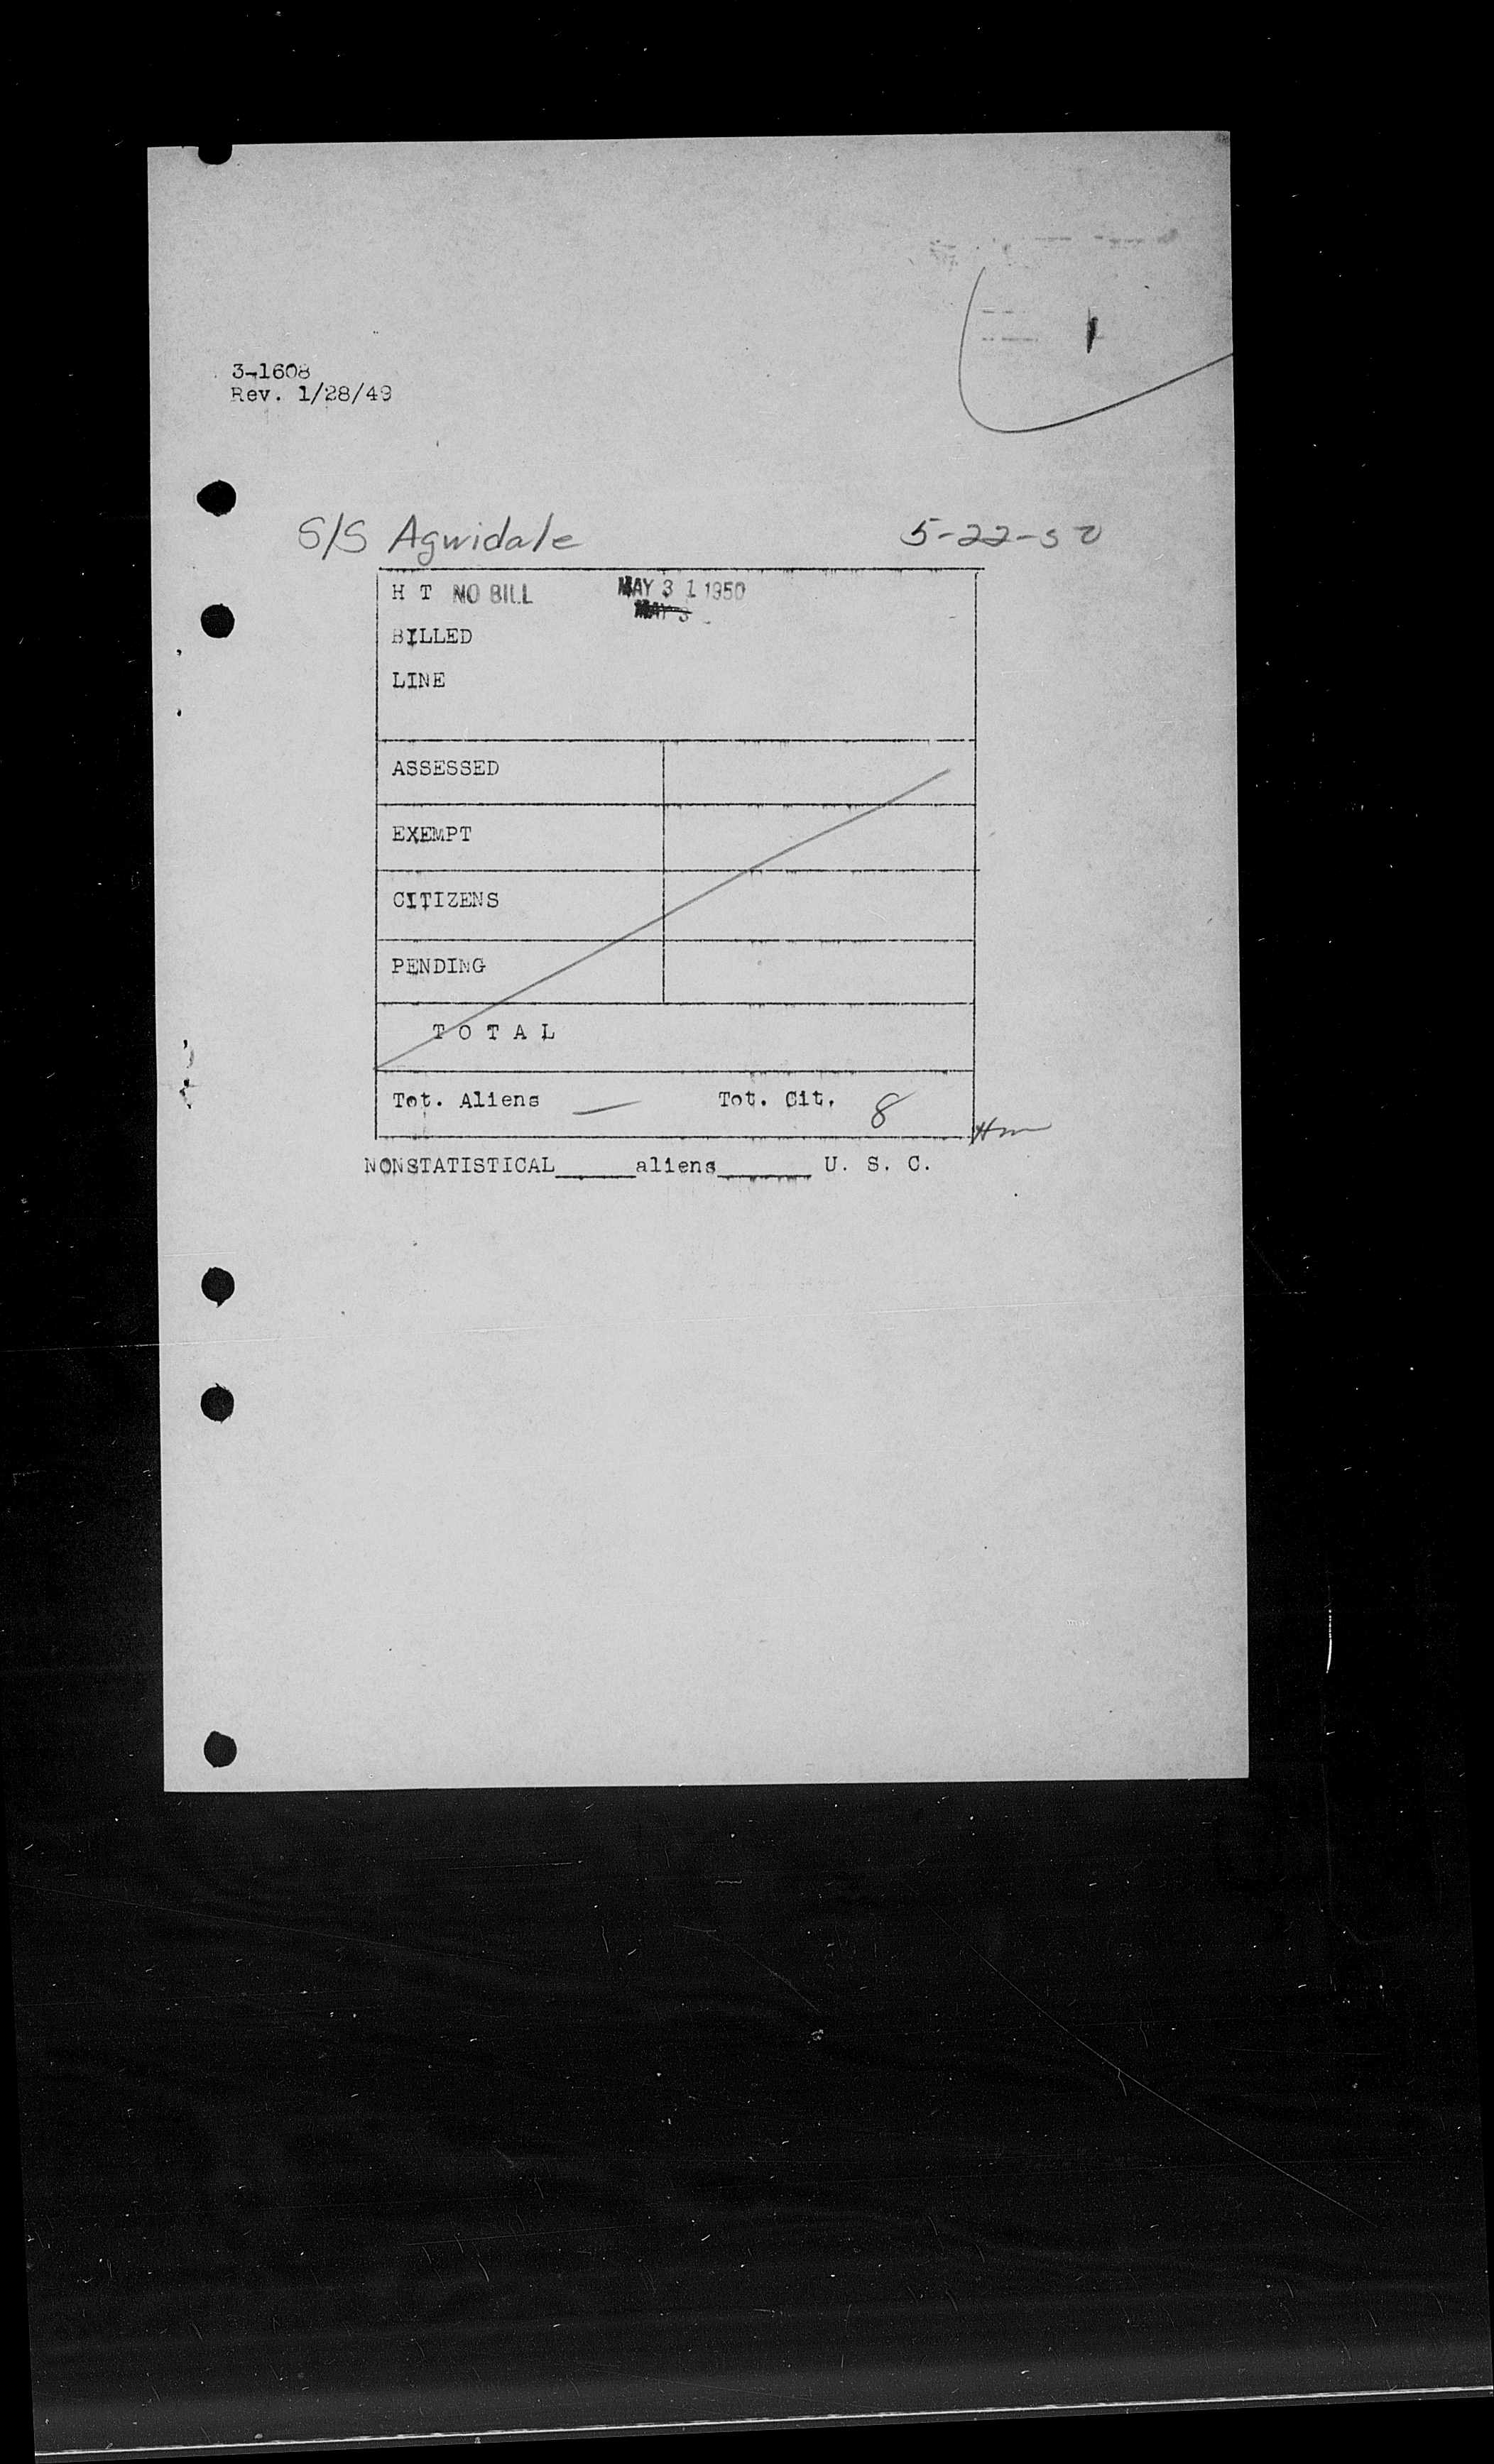 1
3-1608
Rev. 1/28/49
S/S Agwidale 5-22-50
H T NO BILL MAY 31 1950
MAY 3
BILLED
LINE
ASSESSED
EXEMPT
CITIZENS
PENDING
T O T A L
Tot. Aliens — Tot. Cit. 8
NONSTATISTICAL_____aliens______ U. S. C.